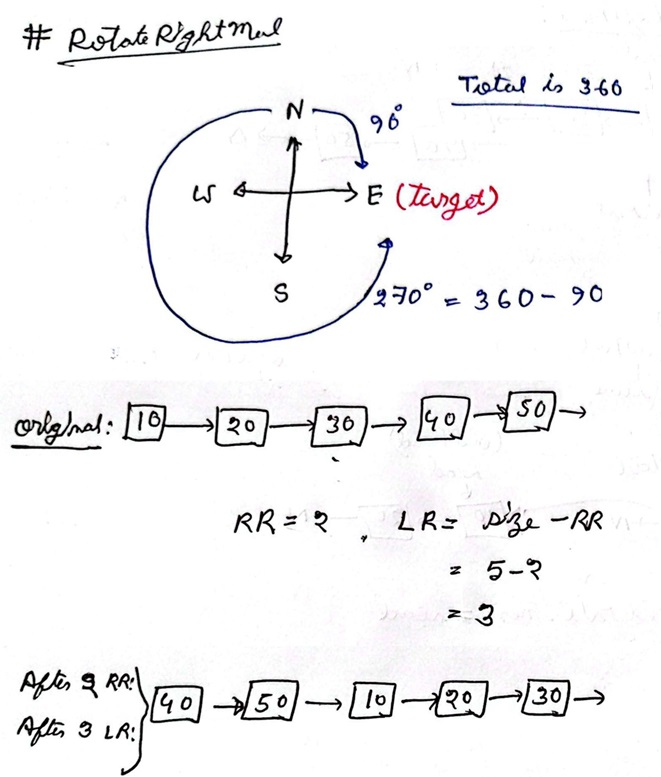 # RotateRightMul
Total is 360
N
90°
W
E (Target)
S
270° = 360 - 90
Original: 10 → 20 → 30 → 40 → 50 →
RR = 2 , LR = size - RR
= 5 - 2
= 3
After 2 RR:
After 3 LR:
40 → 50 → 10 → 20 → 30 →